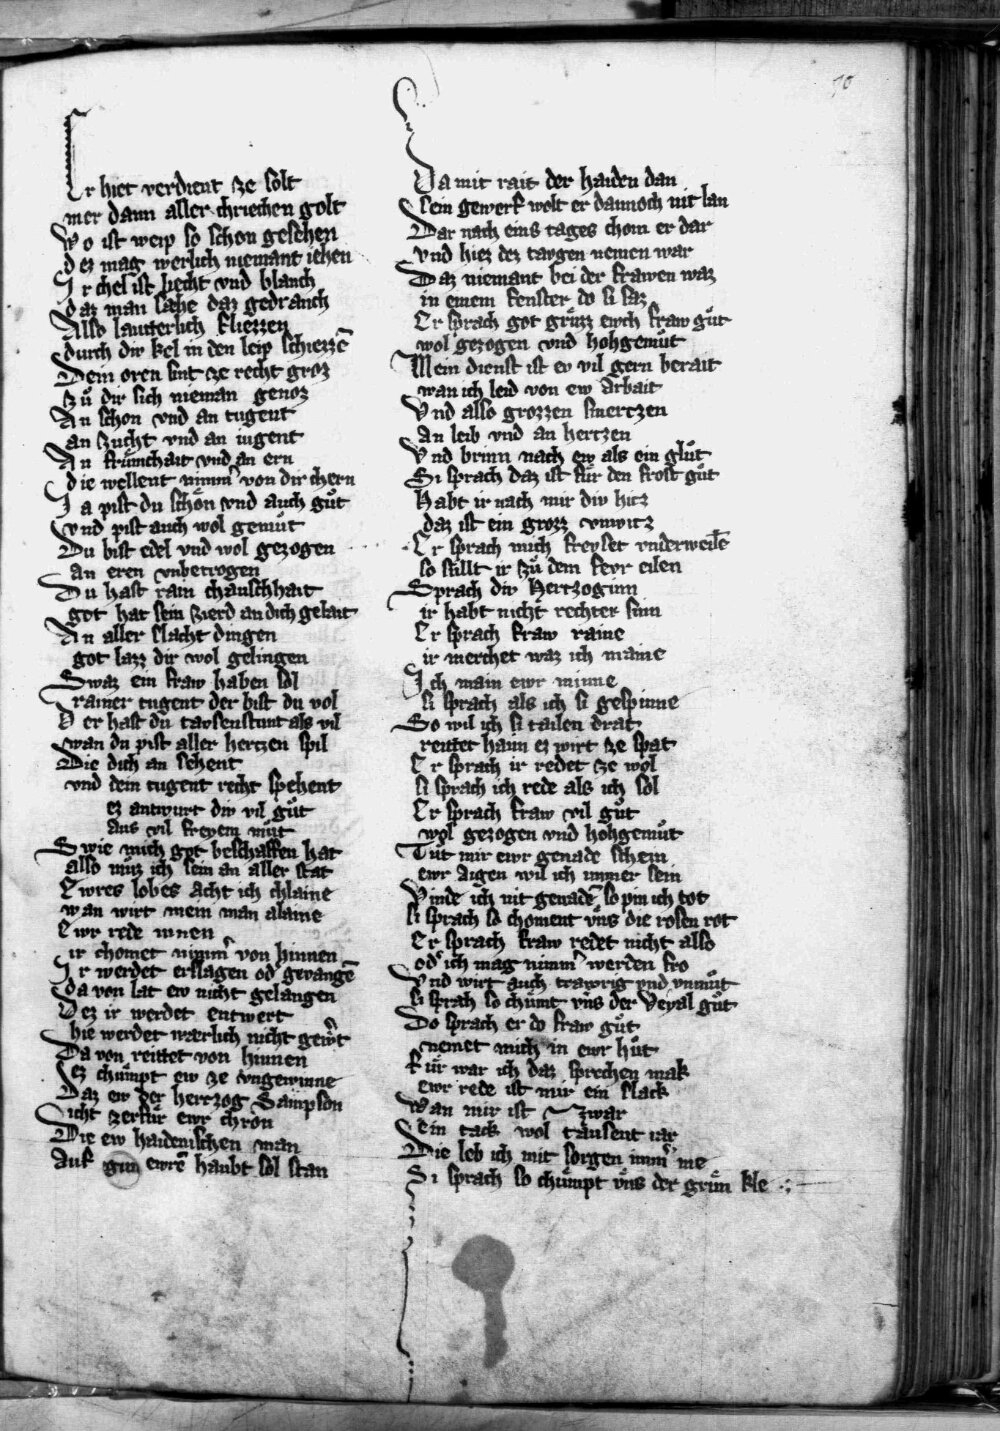 70
Er hiet verdient ze solt
mer dann aller chriechen golt
Wo ist weip so schon gesehen
dez mag werlich niemant iehen
Ir chel ist liecht vnd blanch
daz man sähe daz gedranch
Also lauterlich fliezzen
durch div kel in den leip schiezzē
Dein oren sint ze recht groz
zů dir sich nieman genoz
An schon vnd an tugent
an zucht vnd an iugent
An frümchait vnd an ern
die wellent nimm̃ von dir chern
Ja pist du schön vnd auch gůt
vnd pist auch wol gemůt
Du bist edel vnd wol gezogen
an eren vnbetrogen
Du hast rain chäuschhait
got hat sein zierd an dich gelait
An aller slacht dingen
got lazz dir wol gelingen
Swaz ein fraw haben sol
rainer tugent der bist du vol
Der hast du tavsenstunt als vil
wan du pist aller hertzen spil
Die dich an sehent
vnd dein tugent recht spehent
ez antwurt div vil gůt
aus vil freyem můt
Swie mich got beschaffen hat
also můz ich sein an aller stat
Ewres lobes acht ich chlaine
wan wirt mein man alaine
Ewr rede innen
ir chomet nimm̃ von hinnen
Ir werdet erslagen od̾ gevangē
da von lat ew nicht gelangen
Dez ir werdet entwert
hie werdet wærlich nicht gew̾t
Da von reittet von hinnen
ez chümpt ew ze vngewinne
Daz ew der hertzog Sampson
icht zerfür ewr chron
Die ew haidenischen man
auf ewrē haubt sol stan
Da mit rait der haiden dan
sein gewerf wolt er dannoch nit lan
Dar nach eins tages chom er dar
vnd hiez dez tavgen nemen war
Daz niemant bei der frawen waz
in einem fenster do si saz
Er sprach got grüzz ewch fraw gůt
wol gezogen vnd hohgemůt
Mein dienst ist ev vil gern berait
wan ich leid von ew arbait
Vnd also grozzen smertzen
an leib vnd an hertzen
Vnd brinn nach ew als ein glůt
Si sprach daz ist für den frost gůt
Habt ir nach mir div hitz
daz ist ein grozz vnwitz
Er sprach mich freyset vnderweilē
so stillt ir zů dem fevr eilen
Sprach div Hertzoginn
ir habt nicht rechter sinn
Er sprach fraw raine
ir merchet waz ich maine
Ich main ewr minne
si sprach als ich si gespinne
So wil ich si tailen drat
reittet haim ez wirt ze spat
Er sprach ir redet ze wol
si sprach ich rede als ich sol
Er sprach fraw vil gůt
wol gezogen vnd hohgemůt
Tůt mir ewr genade schein
ewr aigen wil ich immer sein
Vinde ich nit genadē so pin ich tot
si sprach so choment vns die rosen rot
Er sprach fraw redet nicht also
od̾ ich mag nimm̾ werden fro
Vnd wirt auch trawrig vnd vnmůt
si sprach so chümt vns der Veyal gůt
Do sprach er do fraw gůt
nemet mich in ewr hůt
Für war ich daz sprechen mak
ewr rede ist mir ein slack
Wan mir ist zwar
Ein tack wol tausent iar
Die leb ich mit sorgen imm̾ me
Si sprach so chümpt vns der grün kle